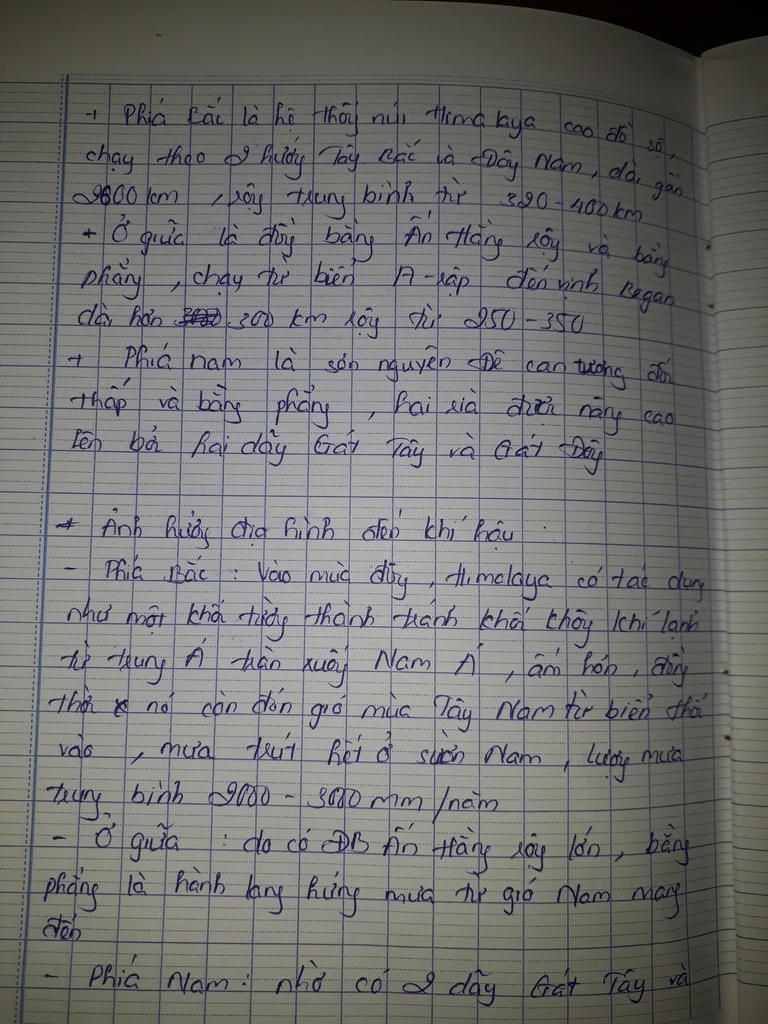 + Phiá Bắc là hệ thốy núi Himalaya cao đồ sộ,
chạy theo 2 hướg Tây Bắc và Đôg Nam, dài gần
2600 km, rộg trung bình từ 320-400 km
+ Ở giữa là đồg bằng Ấn Hằng rộg và bằng
phẳng, chạy từ biển A-rập đến vịnh Began
dài hơn 300 km rộg từ 250-350
+ Phiá nam là sơn nguyên Đê can tương đối
thấp và bằng phẳng, hai rià được nâng cao
lên bởi hai dãy Gát Tây và Gát Đôg
* Ảnh hưởg địa hình đến khí hậu
- Phiá Bắc: Vào mùa đôg, Himalaya có tác dụng
như một khối tườg thành tránh khối khôg khí lạnh
từ trung Á tràn xuốg Nam Á, ấm hơn, đồg
thời nó còn đón gió mùa Tây Nam từ biển thổi
vào, mưa trút hết ở sườn Nam, lượg mưa
trug bình 2000-3000 mm/năm
- Ở giữa: do có ĐB Ấn Hằng rộg lớn, bằng
phẳng là hành lang hứng mưa từ gió Nam mang
đến
- Phiá Nam: nhờ có 2 dãy Gát Tây và